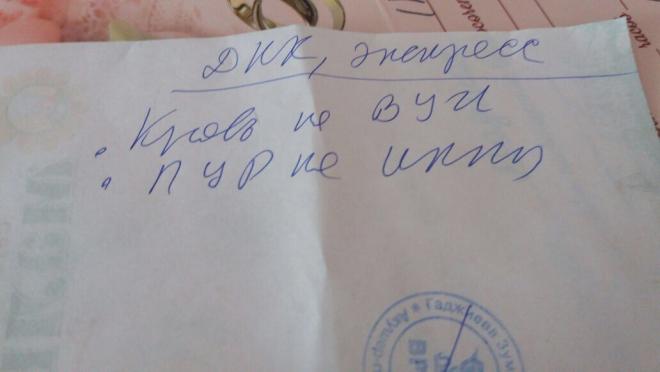 ДНК, экспресс
• Кровь на ВУИ
• ПЦР на ИППП
Гаджиева Зум
Акушер-
ВР